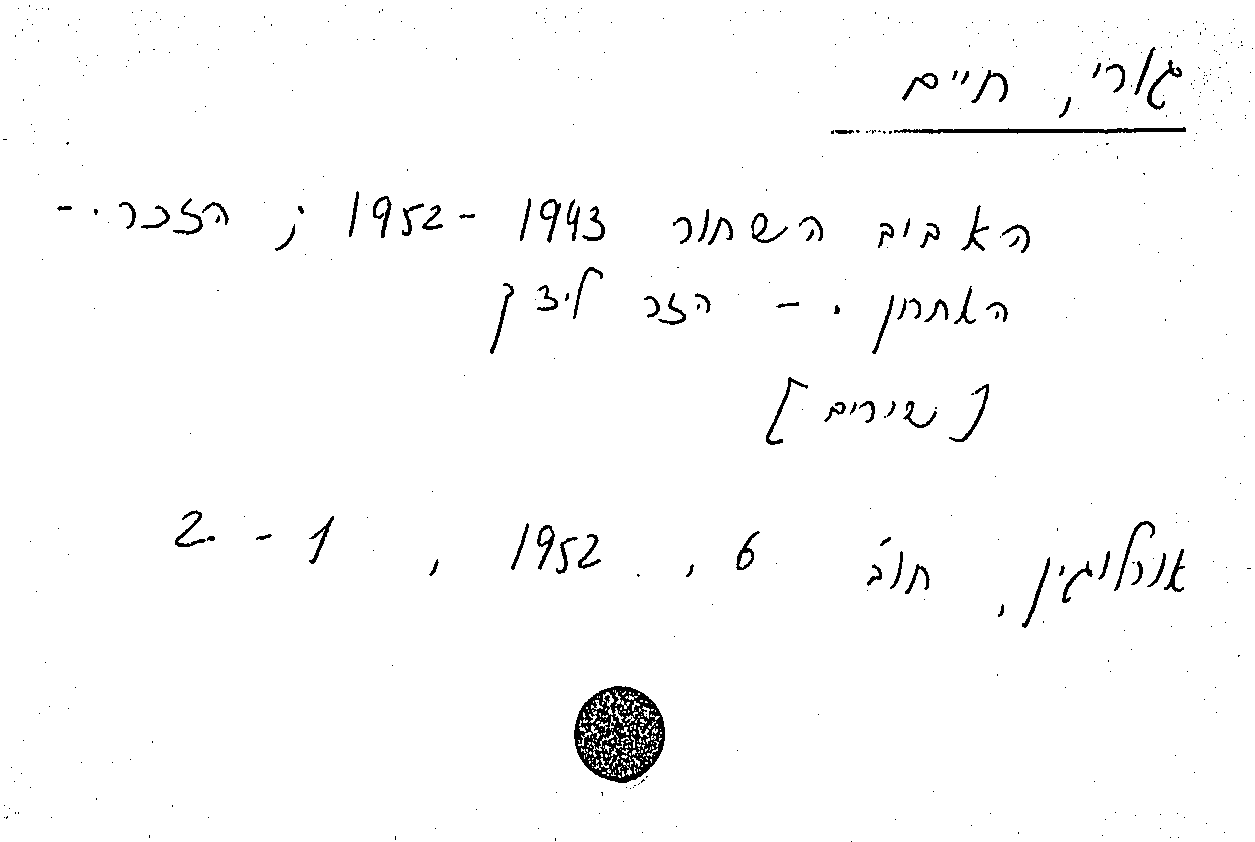 גורי, חיים
האביב השחור 1943 -1952 ; הזכר. -
האחרון . - הזר ליצן
[שירים]
אורלוגין, חוב' 6, 1952, 1 - 2